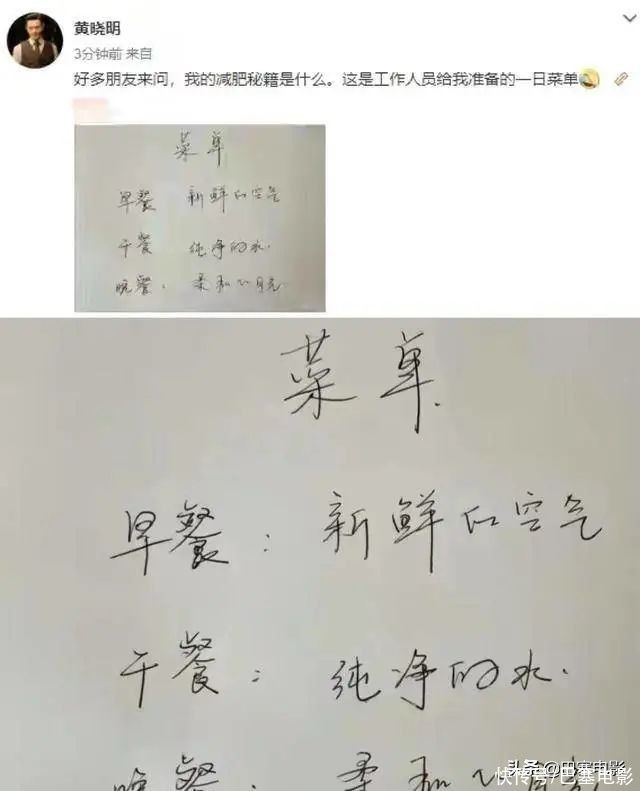 黄晓明
3分钟前 来自
好多朋友来问，我的减肥秘籍是什么。这是工作人员给我准备的一日菜单
菜单
早餐 新鲜的空气
午餐 纯净的水.
晚餐: 柔和的月光
菜单.
早餐: 新鲜的空气
午餐: 纯净的水.
晚餐: 柔和的
头条 @巴塞电影
快传号/巴塞电影